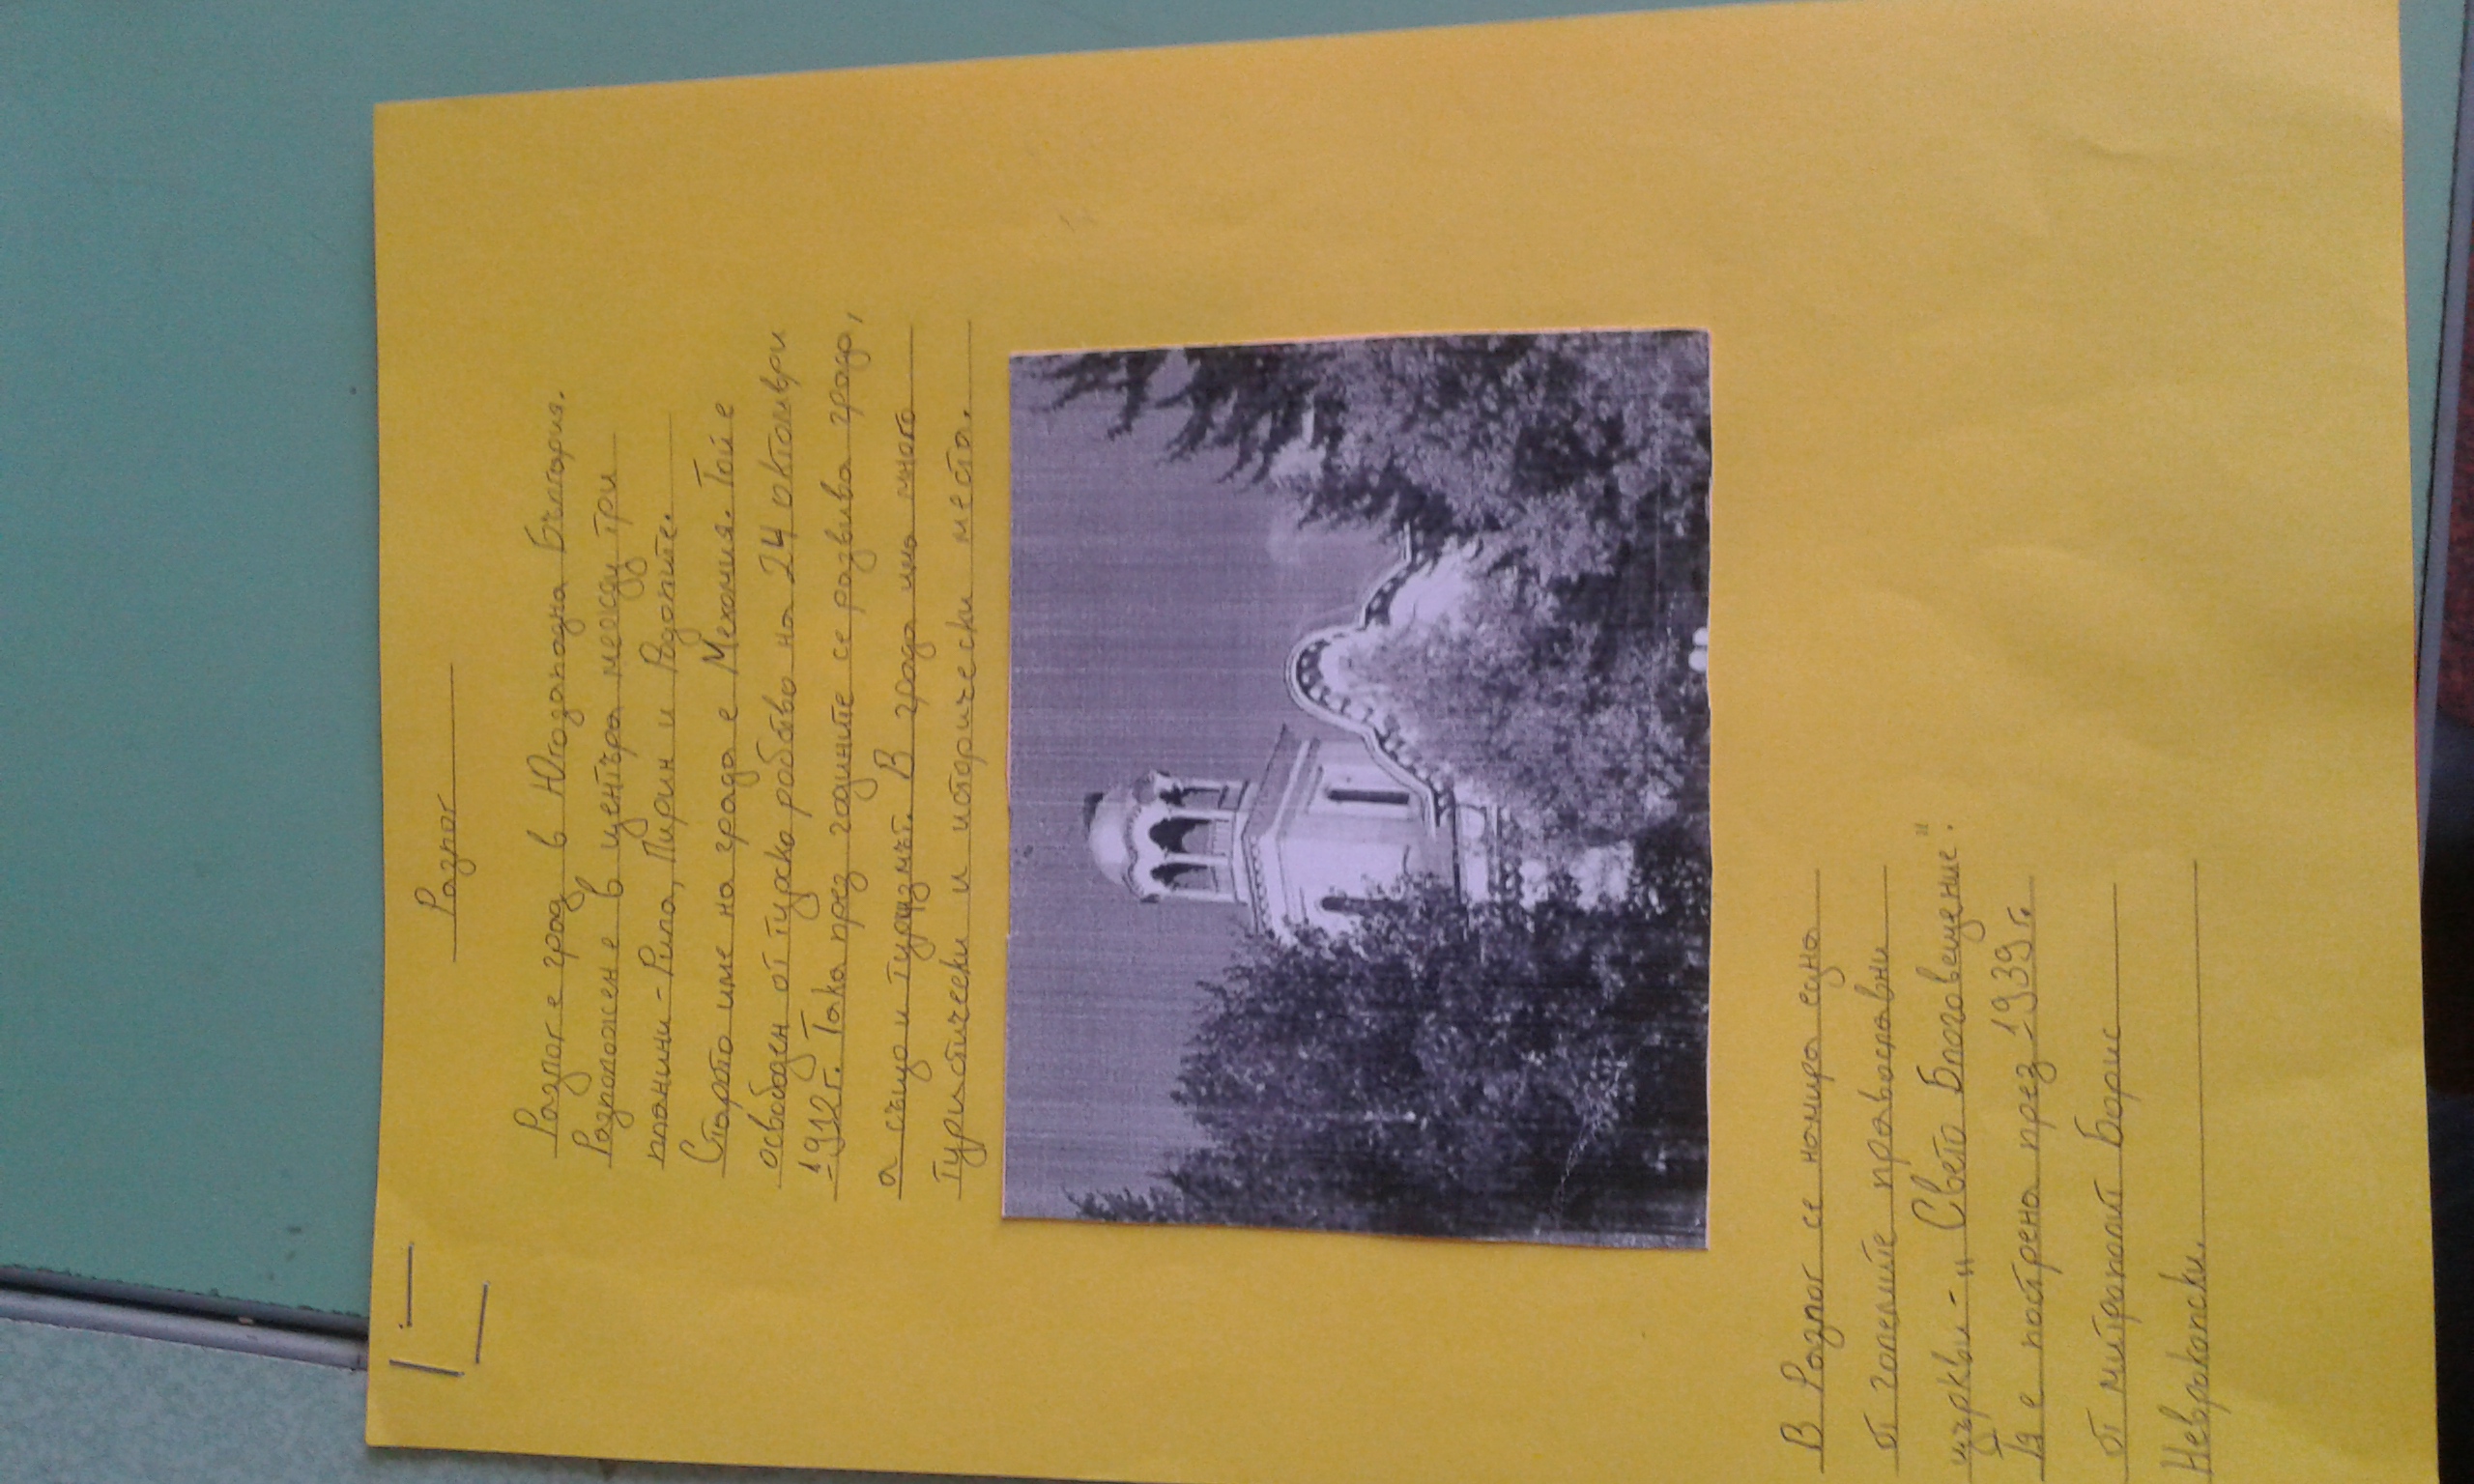 Разлог
Разлог е град в Югозападна България.
Разположен е в центъра между три
планини - Рила, Пирин и Родопите.
Старото име на града е Мехомия. Той е
освободен от турско робство на 24 октомври
1912г. Така през годините се развива града,
а също и туризмът. В града има много
туристически и исторически места.
В Разлог се намира една
от големите православни
църкви - „Свето Благовещение".
Тя е построена през 1939г.
от митрополит Борис
Неврокопски.